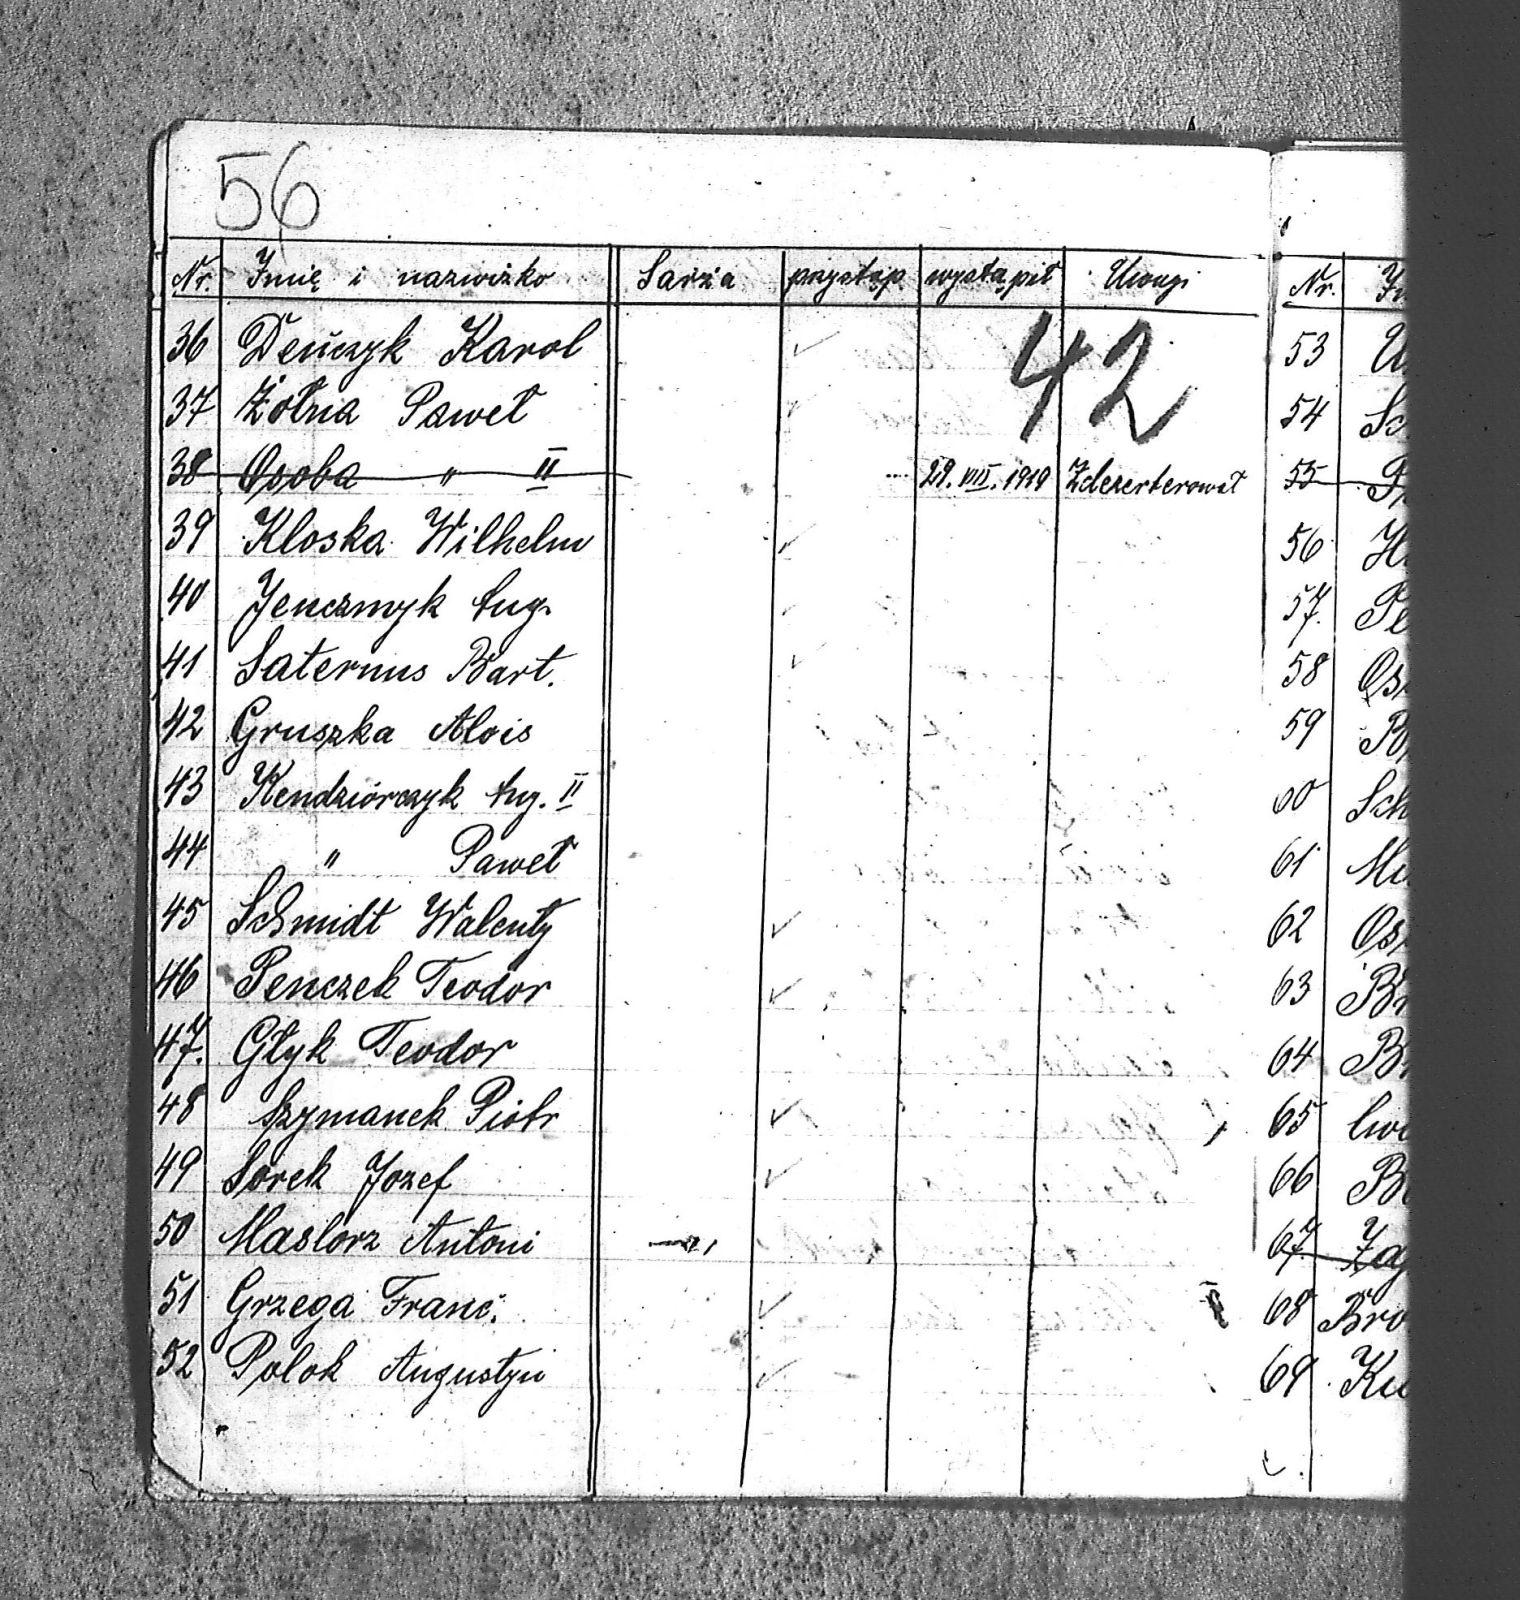 56
Nr. Imię i nazwisko Sarża przystąp wystąpił Uwagi
42
36 Deńczyk Karol
37 Żółna Paweł
38 Osoba " II 29. VIII. 1919 Zdezerterował
39 Kloska Wilhelm
40 Jenczmyk Aug.
41 Saternus Bart.
42 Gruszka Alois
43 Kendziorczyk Aug. II
44 " Paweł
45 Schmidt Walenty
46 Penczek Teodor
47. Głyk Teodor
48 Szymanek Piotr
49 Sorek Jozef
50 Maslorz Antoni
51 Grzega Franc.
52 Polok Augustyn
Nr.
53
54
55
56
57.
58
59
60
61
62
63
64
65
66
67
68
69